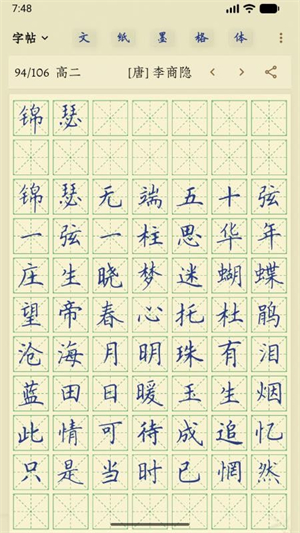 7:48
字帖 文 纸 墨 格 体
94/106 高二 [唐] 李商隐
锦瑟
锦瑟无端五十弦
一弦一柱思华年
庄生晓梦迷蝴蝶
望帝春心托杜鹃
沧海月明珠有泪
蓝田日暖玉生烟
此情可待成追忆
只是当时已惘然